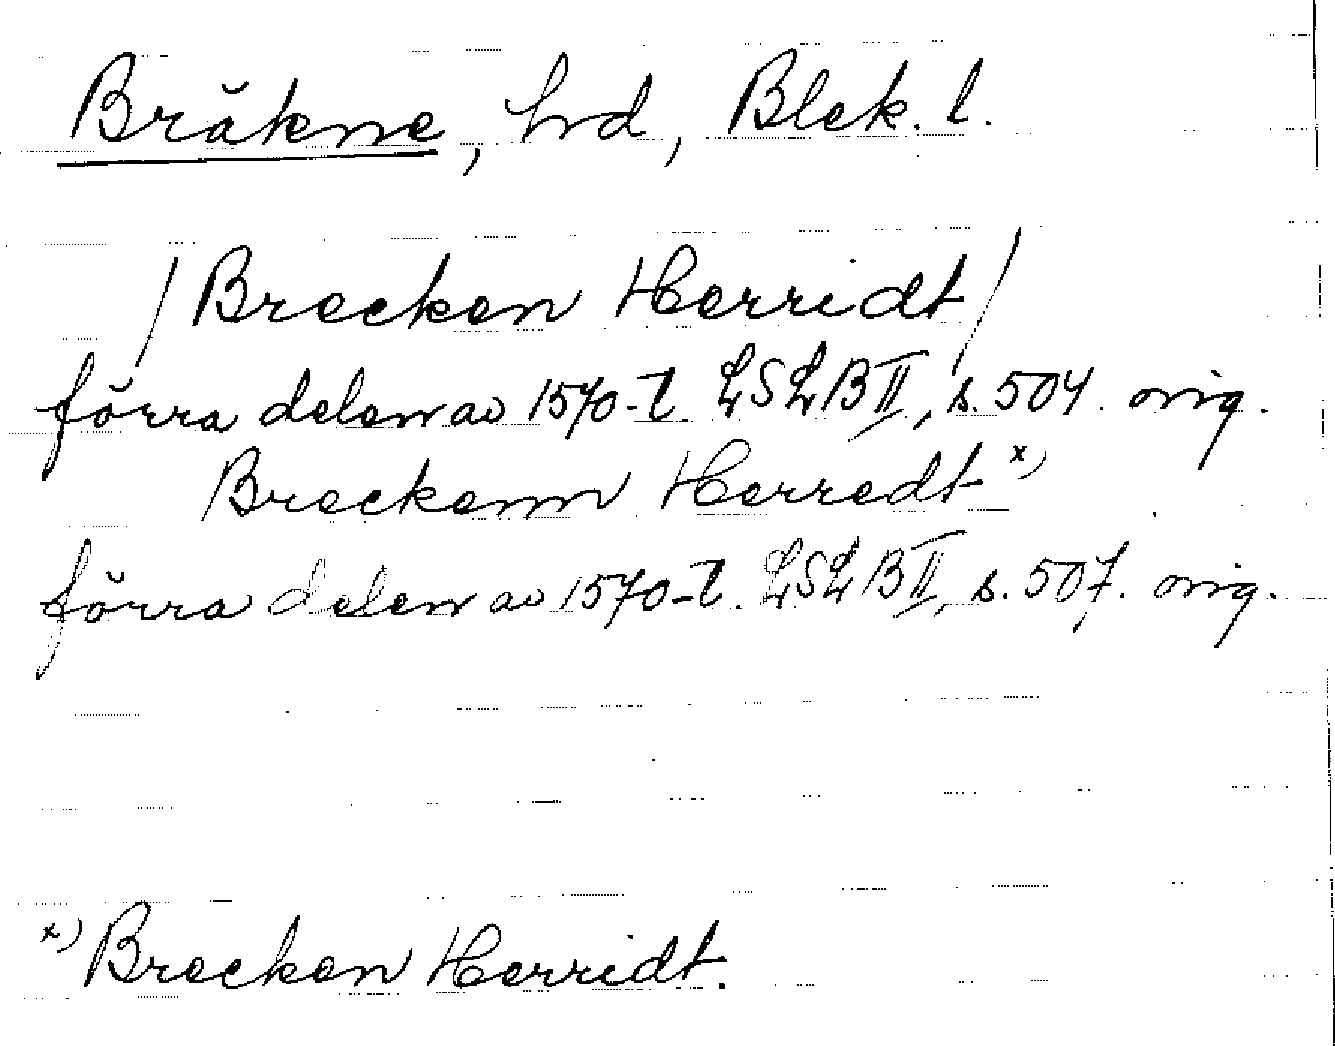 Bräkne, hrd, Blek. l.
/Brecken Herridt/
förra delen av 1570-t. LSLB II, s. 504. orig.
Breckenn Herredt x)
förra delen av 1570-t. LSLB II, s. 507. orig.
x) Brecken Herridt.